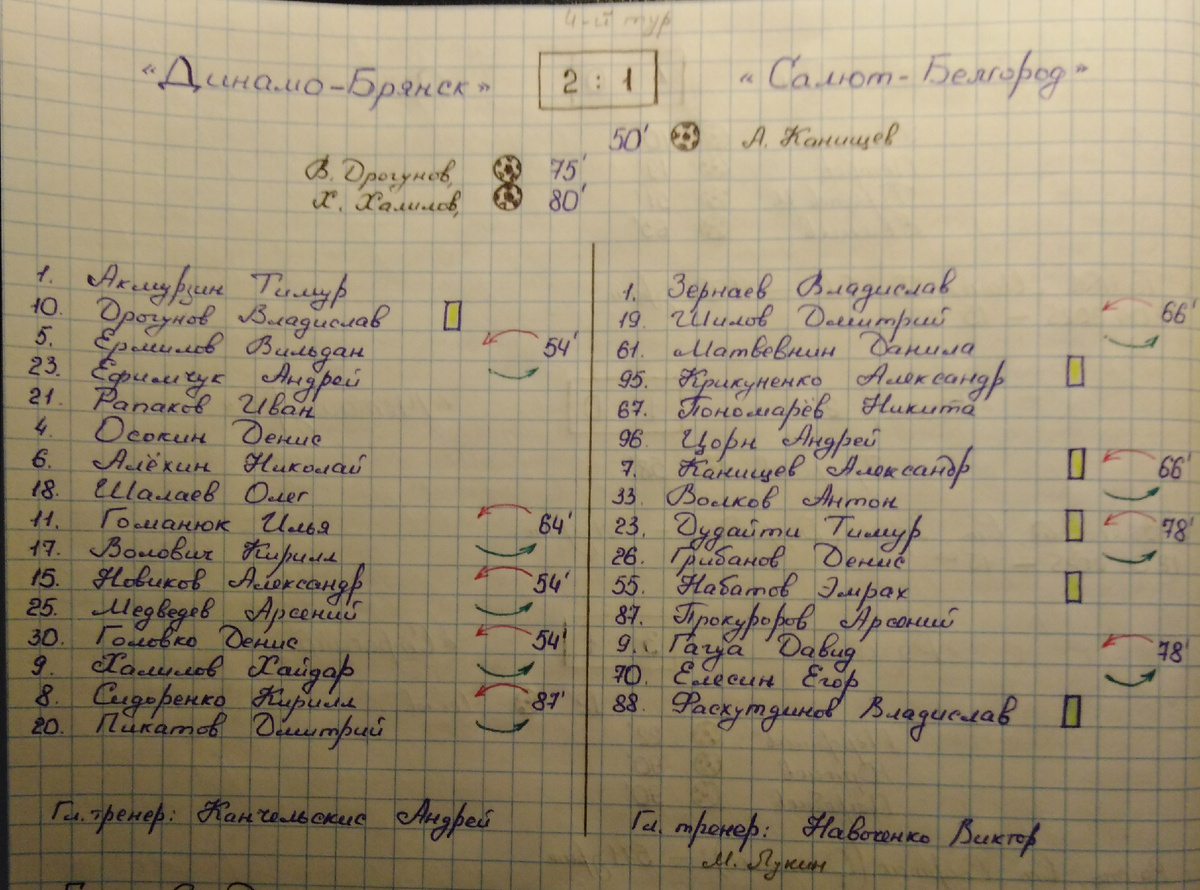 4-й тур
«Динамо-Брянск» 2 : 1 «Салют-Белгород»
50' А. Канищев
В. Дрогунов, 75'
Х. Халилов, 80'
1. Акмурзин Тимур
10. Дрогунов Владислав
5. Ермилов Вильдан 54'
23. Ефимчук Андрей
21. Рапаков Иван
4. Осокин Денис
6. Алёхин Николай
18. Шалаев Олег
11. Гоманюк Илья 64'
17. Волович Кирилл
15. Новиков Александр 54'
25. Медведев Арсений
30. Головко Денис 54'
9. Халилов Хайдар
8. Сидоренко Кирилл 87'
20. Пикатов Дмитрий
Гл. тренер: Канчельскис Андрей
1. Зернаев Владислав
19. Шилов Дмитрий 66'
61. Матвевнин Данила
95. Крикуненко Александр
67. Пономарёв Никита
96. Цорн Андрей
7. Канищев Александр 66'
33. Волков Антон
23. Дудайти Тимур 78'
26. Грибанов Денис
55. Набатов Эмрах
87. Прокуроров Арсений
9. Гагуа Давид 78'
70. Елесин Егор
88. Фасхутдинов Владислав
Гл. тренер: Навоченко Виктор
М. Лукин